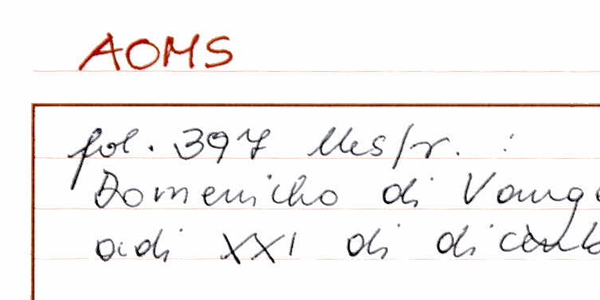 AOMS
fol. 397 Mes/r. :
Domenicho di Vang
adi XXI di dicemb